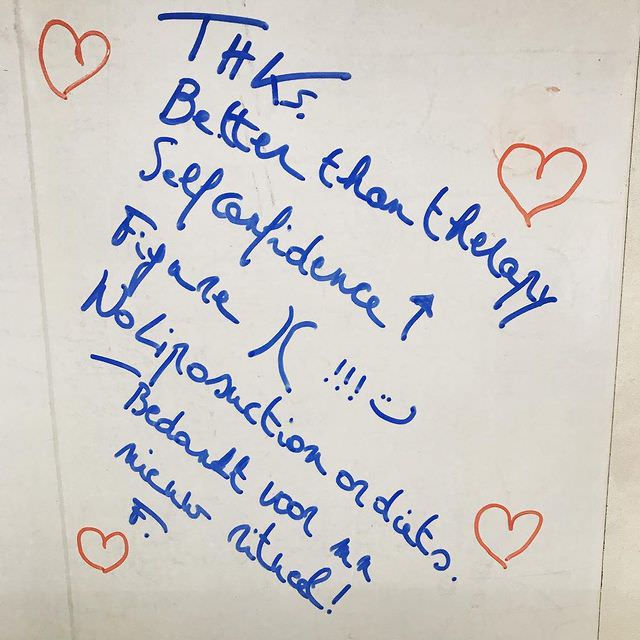 THKs.
Better than therapy
Self confidence ↑
Figure )( !!! :)
No Liposuction or diets.
– Bedankt voor mn
nieuw ritueel!
F.